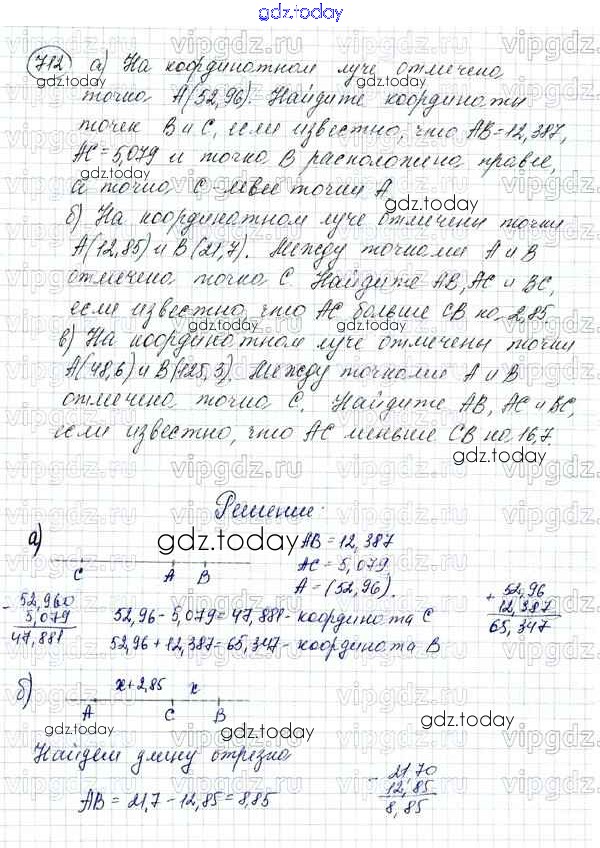 gdz.today
712 а) На координатном луче отмечена
точка А(52,96). Найдите координаты
точек В и С, если известно, что АВ=12,387,
АС=5,079 и точка В расположена правее,
а точка С левее точки А
б) На координатном луче отмечены точки
А(12,85) и В(21,7). Между точками А и В
отмечена точка С. Найдите АВ, АС и ВС,
если известно, что АС больше СВ на 2,85
в) На координатном луче отмечены точки
А(48,6) и В(125,3). Между точками А и В
отмечена точка С. Найдите АВ, АС и ВС,
если известно, что АС меньше СВ на 16,7
Решение:
а)
С А В
АВ = 12,387
АС = 5,079
А = (52,96).
- 52,960
5,079
47,881
52,96 - 5,079 = 47,881 - координата С
52,96 + 12,387 = 65,347 - координата В
+ 52,96
12,387
65,347
б)
х+2,85 х
А С В
Найдем длину отрезка
АВ = 21,7 - 12,85 = 8,85
- 21,70
12,85
8,85
vipgdz.ru
gdz.today